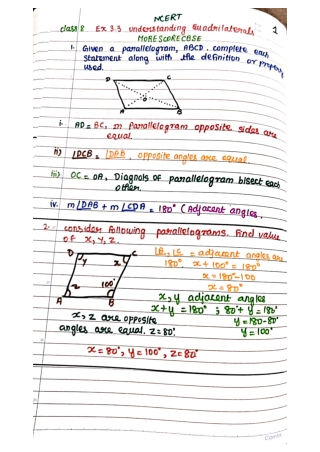 NCERT
class 8 Ex 3.3 understanding Quadrilaterals 1
MORESCORECBSE
1. Given a parallelogram, ABCD. complete each
statement along with the definition or property
used.
D C
O
A B
i. AD = BC, In Parallelogram opposite sides are
equal.
ii) ∠DCB = ∠DAB, opposite angles are equal.
iii) OC = OA, Diagnols of parallelogram bisect each
other.
iv. m∠DAB + m∠CDA = 180° (Adjacent angles.
2. consider following parallelograms. Find value
of x, y, z.
D C
y x
z 100°
A B
= adjacent angles are
180°. x + 100° = 180°
x = 180°-100
x = 80°
x, y adjacent angles
x + y = 180° ; 80 + y = 180°
x, z are opposite y = 180-80°
angles are equal. z = 80° y = 100°
x = 80°, y = 100°, z = 80°